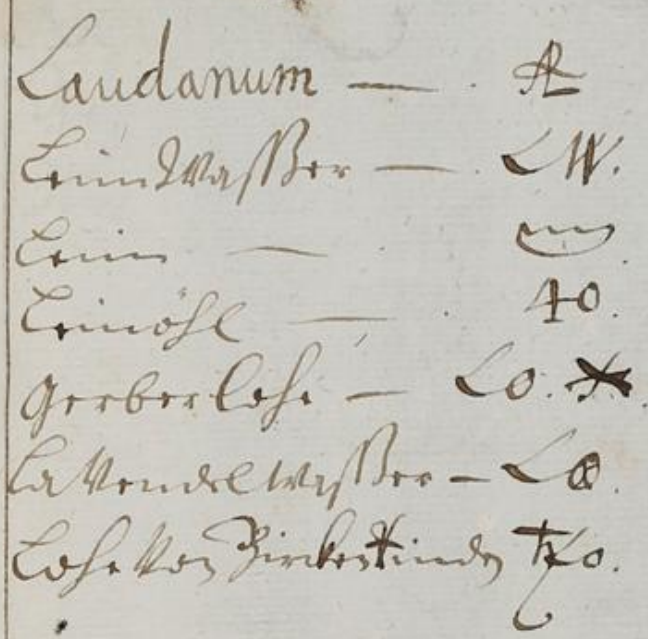 Laudanum —
LeimWaßer — LW.
Leim —
Leinöhl — 40.
Gerberlohe — Lo.
LaVendelwaßer —
Lohe Von Birckenrinden